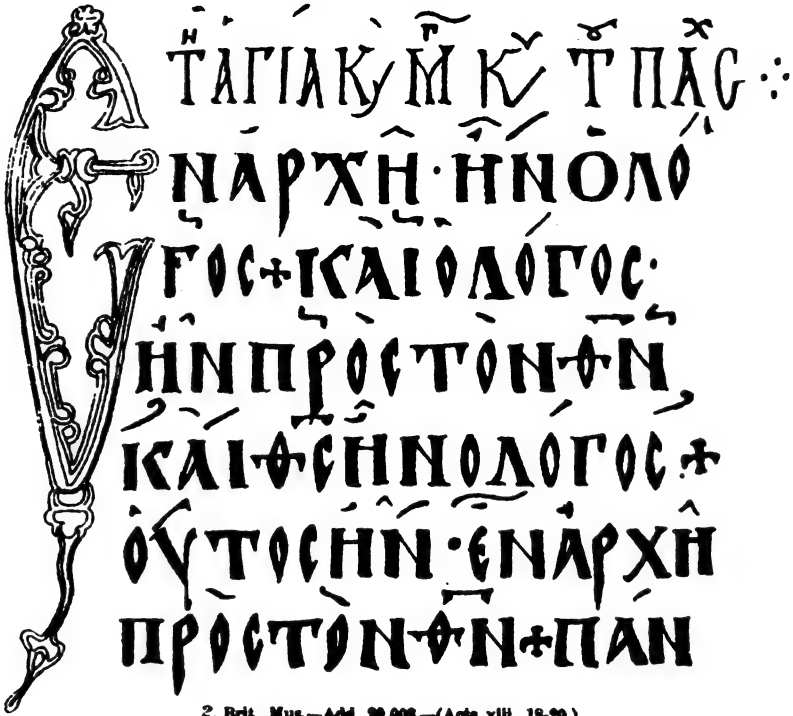 ΤῌΑΓΙΑ Κ,Υ Μ̅Γ Κ Υ Τ ΠΑC ⁘
ΕΝΑΡΧΗ·ΗΝΟΛΟ
ΓΟC+ΚΑΙΟΛΟΓΟC·
ΗΝΠΡΟCΤΟΝΘ̅Ν̅
ΚΑΙΘ̅C̅ΗΝΟΛΟΓΟC+
ΟΥΤΟCΗΝ·ΕΝΑΡΧΗ
ΠΡΟCΤΟΝΘ̅Ν̅+ΠΑΝ
2. Brit. Mus.—Add. 20,003.—(Acts xiii. 18-20.)